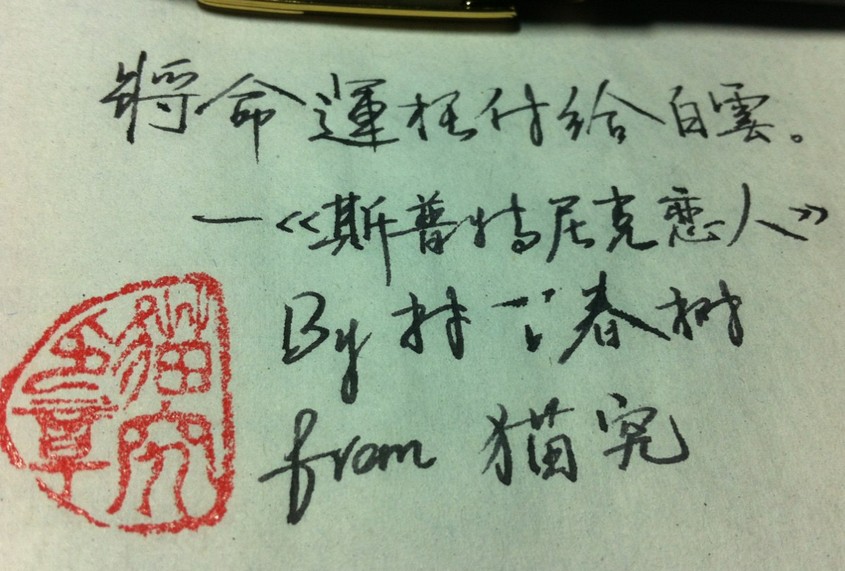 將命運托付给白雲。
—《斯普特尼克恋人》
By 村上春树
from 猫究
猫究之章